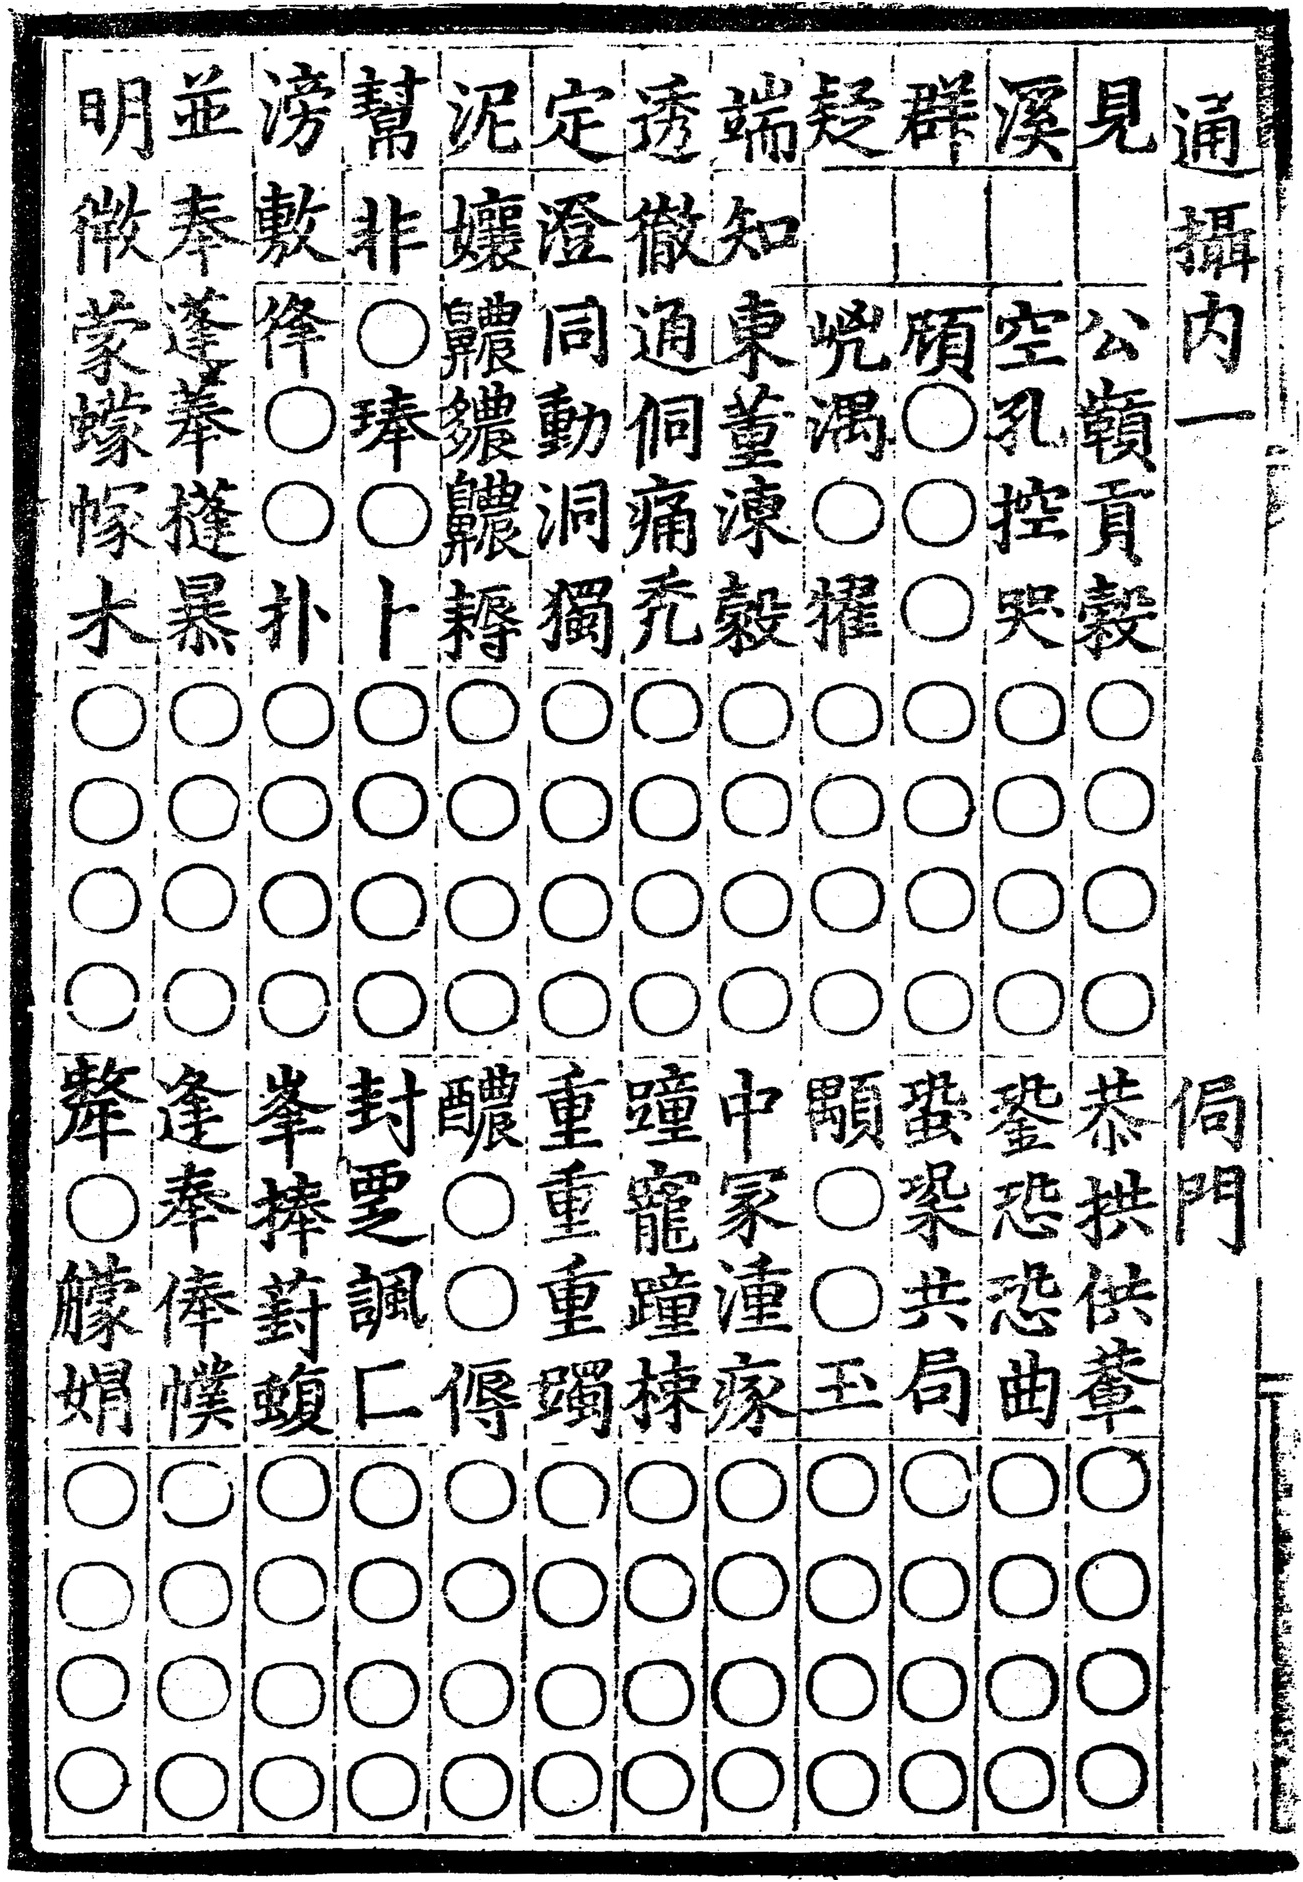 通攝内一 侷門
見 公 贑 貢 穀 〇 〇 〇 〇 恭 拱 供 輂 〇 〇 〇 〇
溪 空 孔 控 哭 〇 〇 〇 〇 銎 恐 恐 曲 〇 〇 〇 〇
群 頎 〇 〇 〇 〇 〇 〇 〇 蛩 㧬 共 局 〇 〇 〇 〇
疑 㟅 湡 〇 㹊 〇 〇 〇 〇 顒 〇 〇 玉 〇 〇 〇 〇
端 知 東 董 涷 豰 〇 〇 〇 〇 中 冢 湩 瘃 〇 〇 〇 〇
透 徹 通 侗 痛 禿 〇 〇 〇 〇 蹱 寵 蹱 楝 〇 〇 〇 〇
定 澄 同 動 洞 獨 〇 〇 〇 〇 重 重 重 躅 〇 〇 〇 〇
泥 孃 齈 繷 齈 耨 〇 〇 〇 〇 醲 〇 〇 傉 〇 〇 〇 〇
幫 非 〇 琫 〇 卜 〇 〇 〇 〇 封 覂 諷 匚 〇 〇 〇 〇
滂 敷 㣔 〇 〇 扑 〇 〇 〇 〇 峯 捧 葑 蝮 〇 〇 〇 〇
並 奉 蓬 菶 槰 暴 〇 〇 〇 〇 逢 奉 俸 幞 〇 〇 〇 〇
明 微 蒙 蠓 幏 木 〇 〇 〇 〇 〇 艨 媢 〇 〇 〇 〇